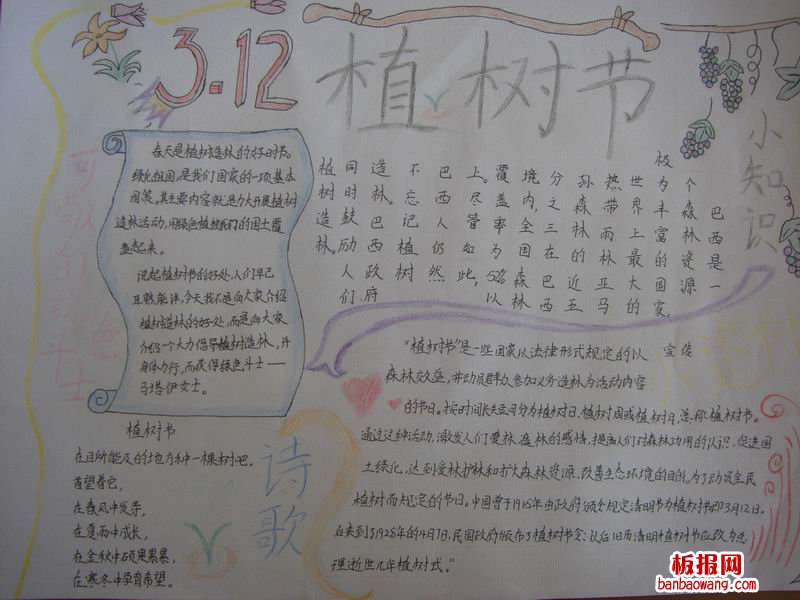 3.12
植树节
小知识
可敬的绿色斗士
春天是植树造林的好时节。
绿化祖国,是我们国家的一项基本
国策。其主要内容就是大力开展植树
造林活动,用绿色植被我们的国土覆
盖起来。
说起植树节的好处,人们早已
耳熟能详,今天我不是向大家介绍
植树造林的好处,而是向大家
介绍一个大力倡导植树造林,并
身体力行,而获得绿色斗士——
马塔伊女士。
巴西是一
个森林资源
极为丰富的国家,
世界上最大的
热带雨林亚马
孙森林的近五
分之三在巴西
境内,全国森林
覆盖率为52%以
上。尽管如此,
巴西人仍然
不忘记植树
造林。巴西政府
同时鼓励人们
植树造林。
"植树节"是一些国家以法律形式规定的以 宣传
森林效益,并动员群众参加义务造林为活动内容
的节日。按时间长短可分为植树日、植树周或植树月,总称植树节。
通过这种活动,激发人们爱林、造林的感情,提高人们对森林功用的认识,促进国
土绿化,达到爱林护林和扩大森林资源、改善生态环境的目的。为了动员全民
植树而规定的节日。中国曾于1915年由政府颁令规定清明节为植树节即3月12日。
后来到了1928年的4月7日,民国政府颁布了植树节令:以后旧历清明植树节应改为总
理逝世几年植树式。"
诗歌
植树节
在目所能及的地方种一棵树吧,
看望着它,
在春风中发芽,
在夏雨中成长,
在金秋中硕果累累,
在寒冬中孕育希望。
板报网
banbaowang.com